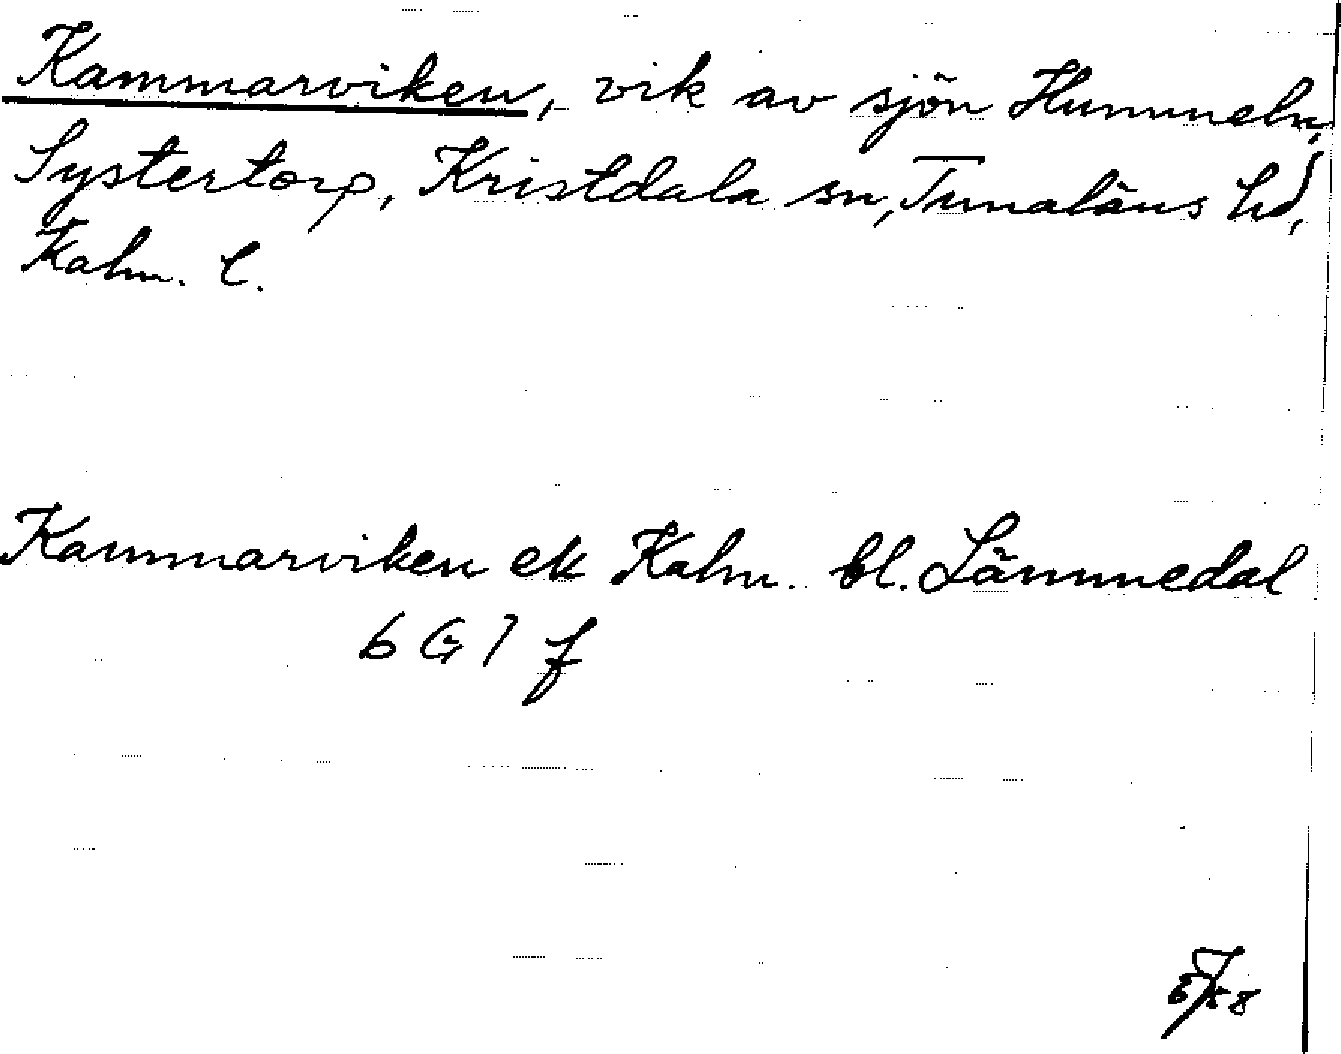 Kammarviken, vik av sjön Hummeln,
Systertorp, Kristdala sn, Tunaläns hd,
Kalm. l.
Kammarviken ek Kalm. bl. Lämmedal
6 G 7 f